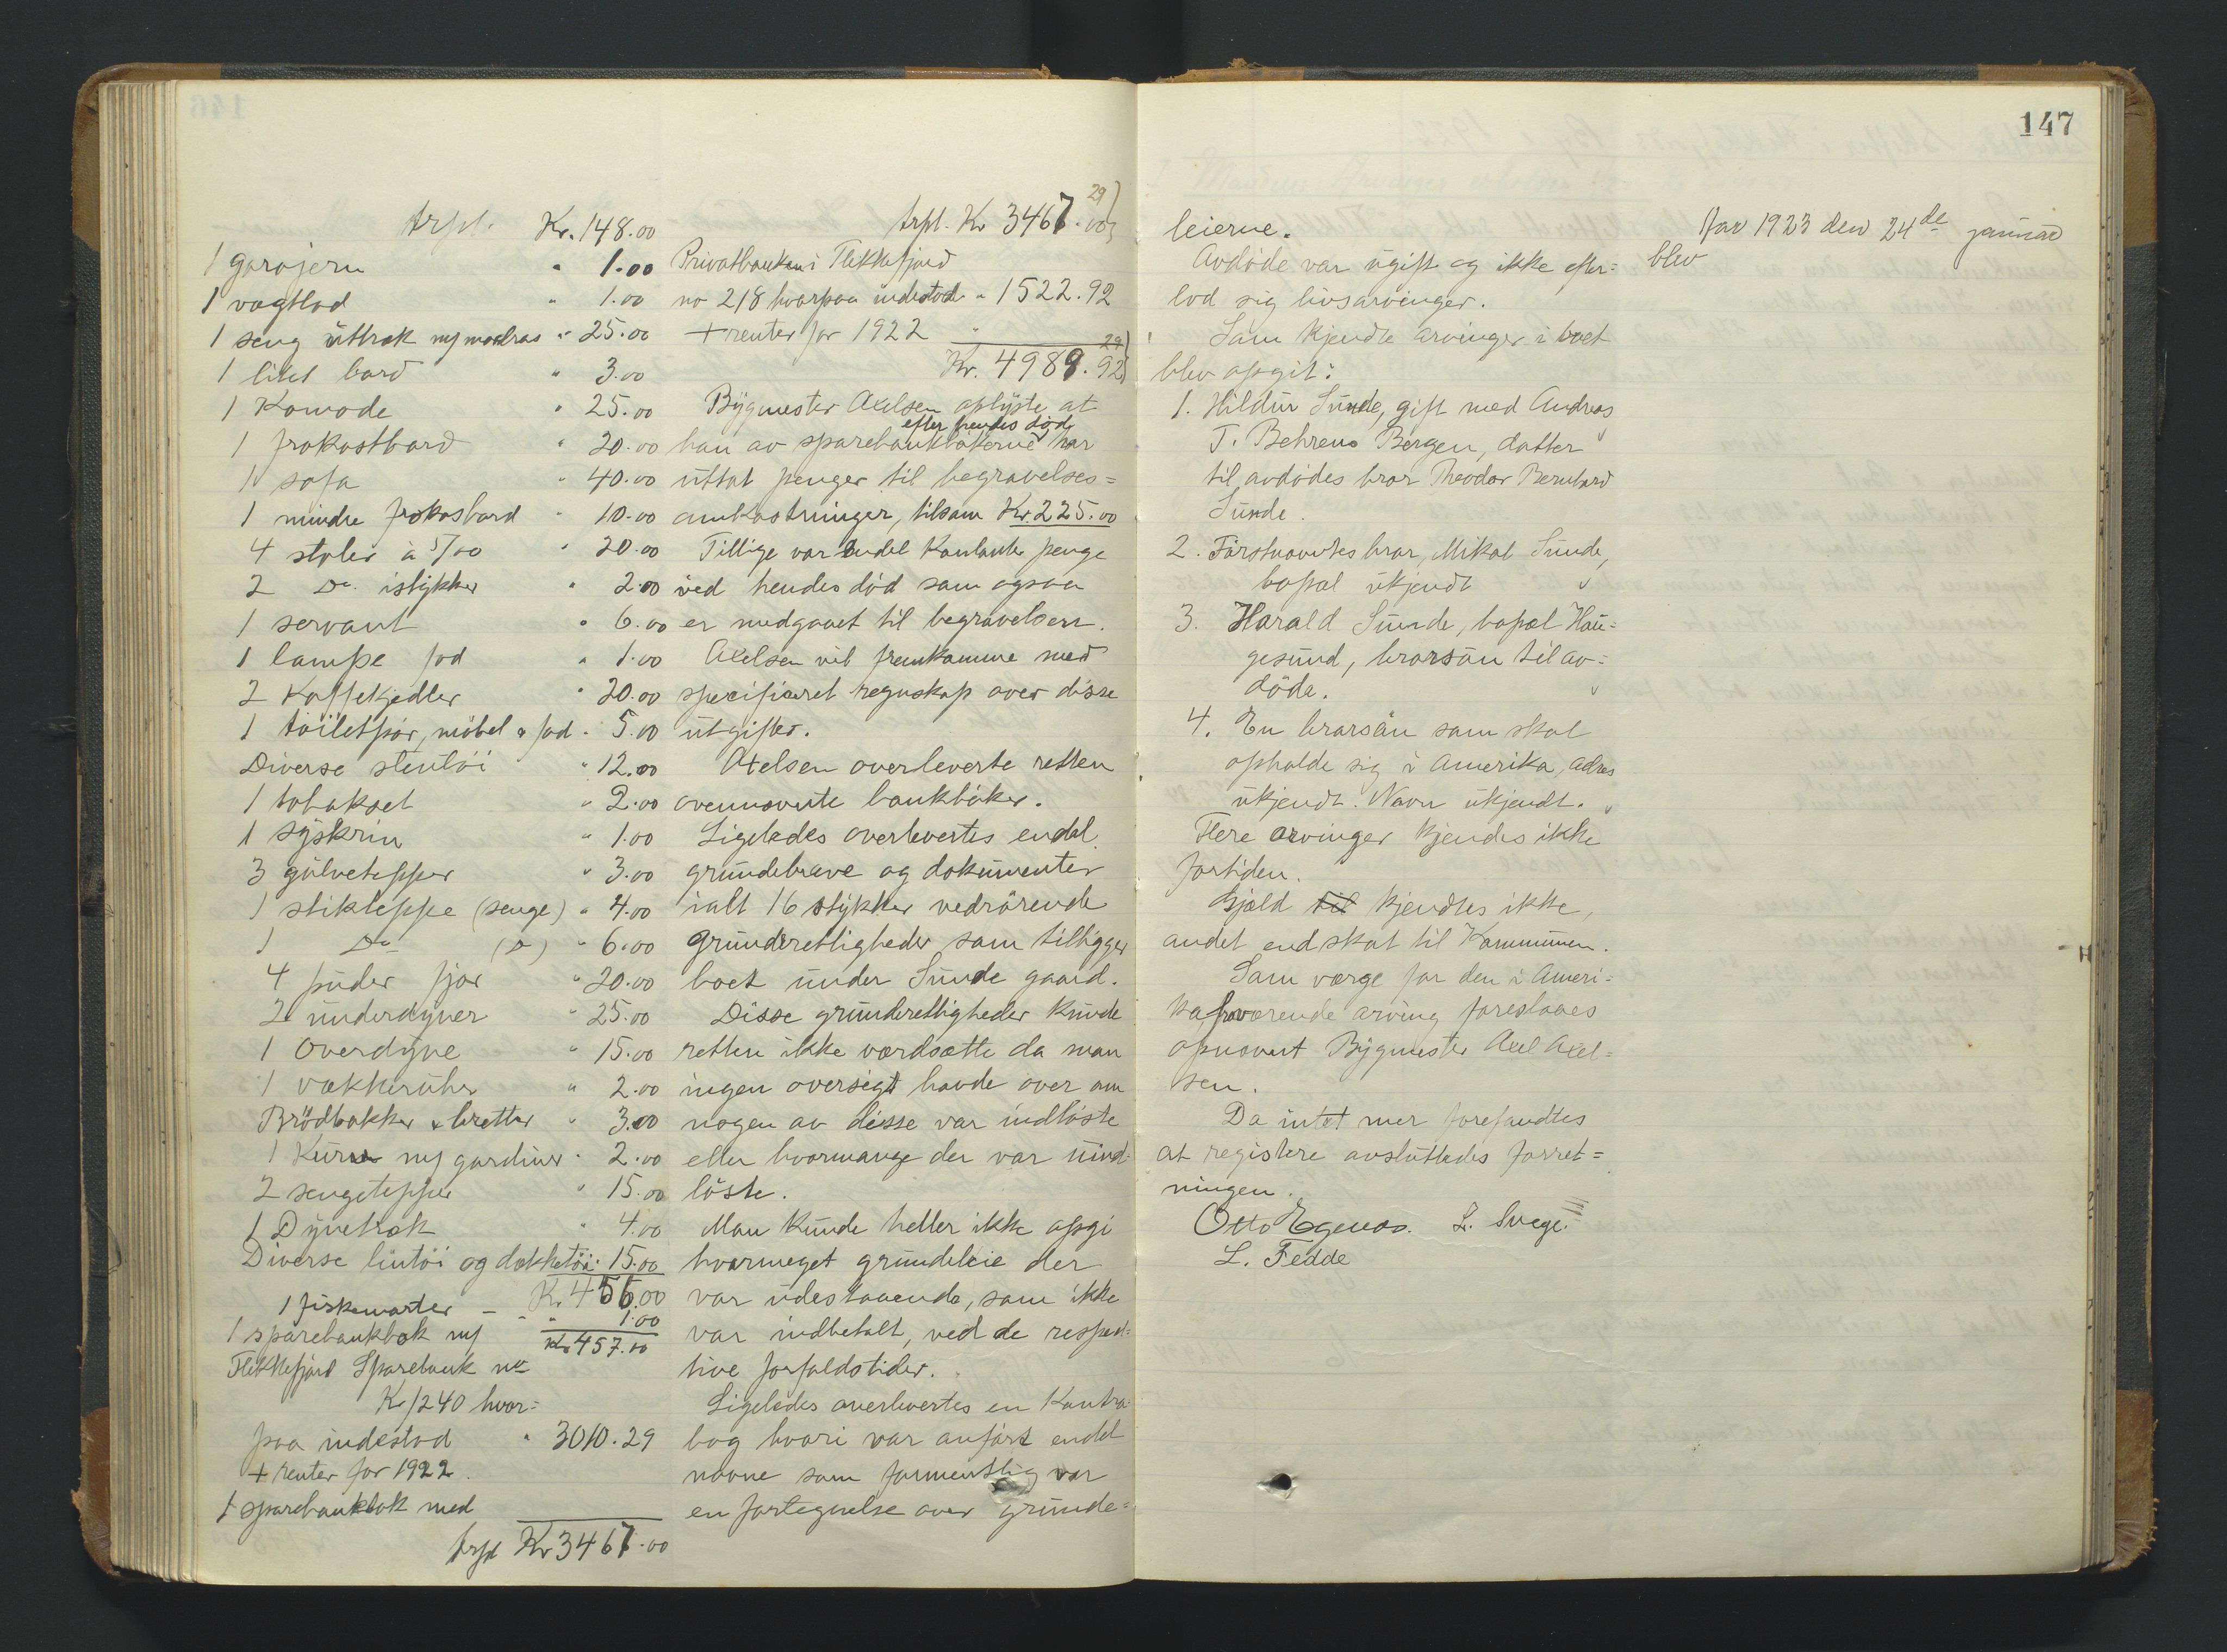 trspt. Kr. 148.00
1 garojern " 1.00
1 vagtlod " 1.00
1 seng uttræk m/ madras " 25.00
1 litet bord " 3.00
1 Komode " 25.00
1 frokostbord " 20.00
1 sofa " 40.00
1 mindre frokosbord " 10.00
4 stoler à 5/00 " 20.00
2 Do. istykker " 2.00
1 servant " 6.00
1 lampe fod " 1.00
2 Kaffekjedler " 20.00
1 toiletspør, møbel & fad " 5.00
Diverse stentöi " 12.00
1 tobakset " 2.00
1 syskrin " 1.00
3 gulvtepper " 3.00
1 stikteppe (senge) " 4.00
1 Do (Do) " 6.00
4 puder fjær " 20.00
2 underdyner " 25.00
1 Overdyne " 15.00
1 vækkeruhr " 2.00
Brödbakker & bretter " 3.00
1 Kurv m/ gardiner " 2.00
2 sengetepper " 15.00
1 Dynetræk " 4.00
Diverse lintöi og dækketöi " 15.00
Kr. 456.00
1 fiskevarter - " 1.00
Kr 457.00
1 sparebankbok m/
Flekkefjord Sparebank no
K/1240 hvor=
paa indestod " 3010.29
+ renter for 1922.
1 sparebankbok med
trspt Kr 3467.00
trspt. Kr 3467.00 29)
Privatbanken i Flekkefjord
no 218 hvorpaa indestod " 1522.92
+ renter for 1922 "
Kr. 4989.92 29)
Bygmester Axelsen oplyste at
efter hendes död
han av sparebankbökerne har
uttat penger til begravelses=
omkostninger, tilsam Kr. 225.00
Tillige var endel Kontante penge
ved hendes död som ogsaa
er medgaaet til begravelsen.
Axelsen vil fremkomme med
specificeret regnskap over disse
utgifter.
Axelsen overleverte retten
ovennævnte bankböker.
Ligeledes overlevertes endel
grundebreve og dokumenter
ialt 16 stykker vedrörende
grundrettigheder som tilligger
boet under Sunde gaard.
Disse grundrettigheder kunde
retten ikke værdsætte da man
ingen oversigt havde over om
nogen av disse var indlöste
eller hvormange der var uind=
löste.
Man kunde heller ikke opgi
hvormeget grundeleie der
var udestaaende, som ikke
var indbetalt, ved de respek=
tive forfaldstider.
Ligeledes overlevertes en Kontra
bog hvori var anfört endel
navne som formentlig var
en fortegnelse over grunde=
147
leierne.
Avdöde var ugift og ikke efter=
lod sig livsarvinger.
Som kjendte arvinger i boet
blev opgit:
1. Hildur Sunde, gift med Andreas
T. Behrens Bergen, datter
til avdödes bror Theodor Bernhard
Sunde.
2. Förstnævntes bror, Mikal Sunde,
bopæl ukjendt
3. Harald Sunde, bopæl Hau=
gesund, brorsön til av=
döde.
4. En brorsön som skal
opholde sig i Amerika, adres
ukjendt. Navn ukjendt.
Flere arvinger kjendes ikke
fortiden.
Gjæld til kjendtes ikke,
andet end skat til Kommunen.
Som værge for den i Ameri=
ka fraværende arving foreslaaes
opnævnt Bygmester Axel Axel=
sen.
Da intet mer forefandtes
at registere avsluttedes forret=
ningen.
Otto Egenæs. L. Svege.
L. Fedde
Aar 1923 den 24de januar
blev